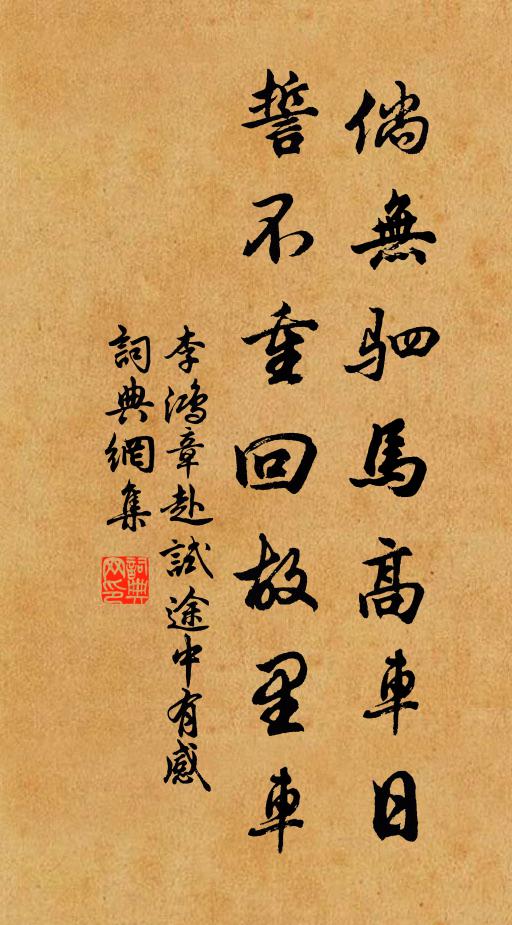 倘無驷馬高車日
誓不重回故里車
李鴻章赴試途中有感
詞典網集
詞典
网印